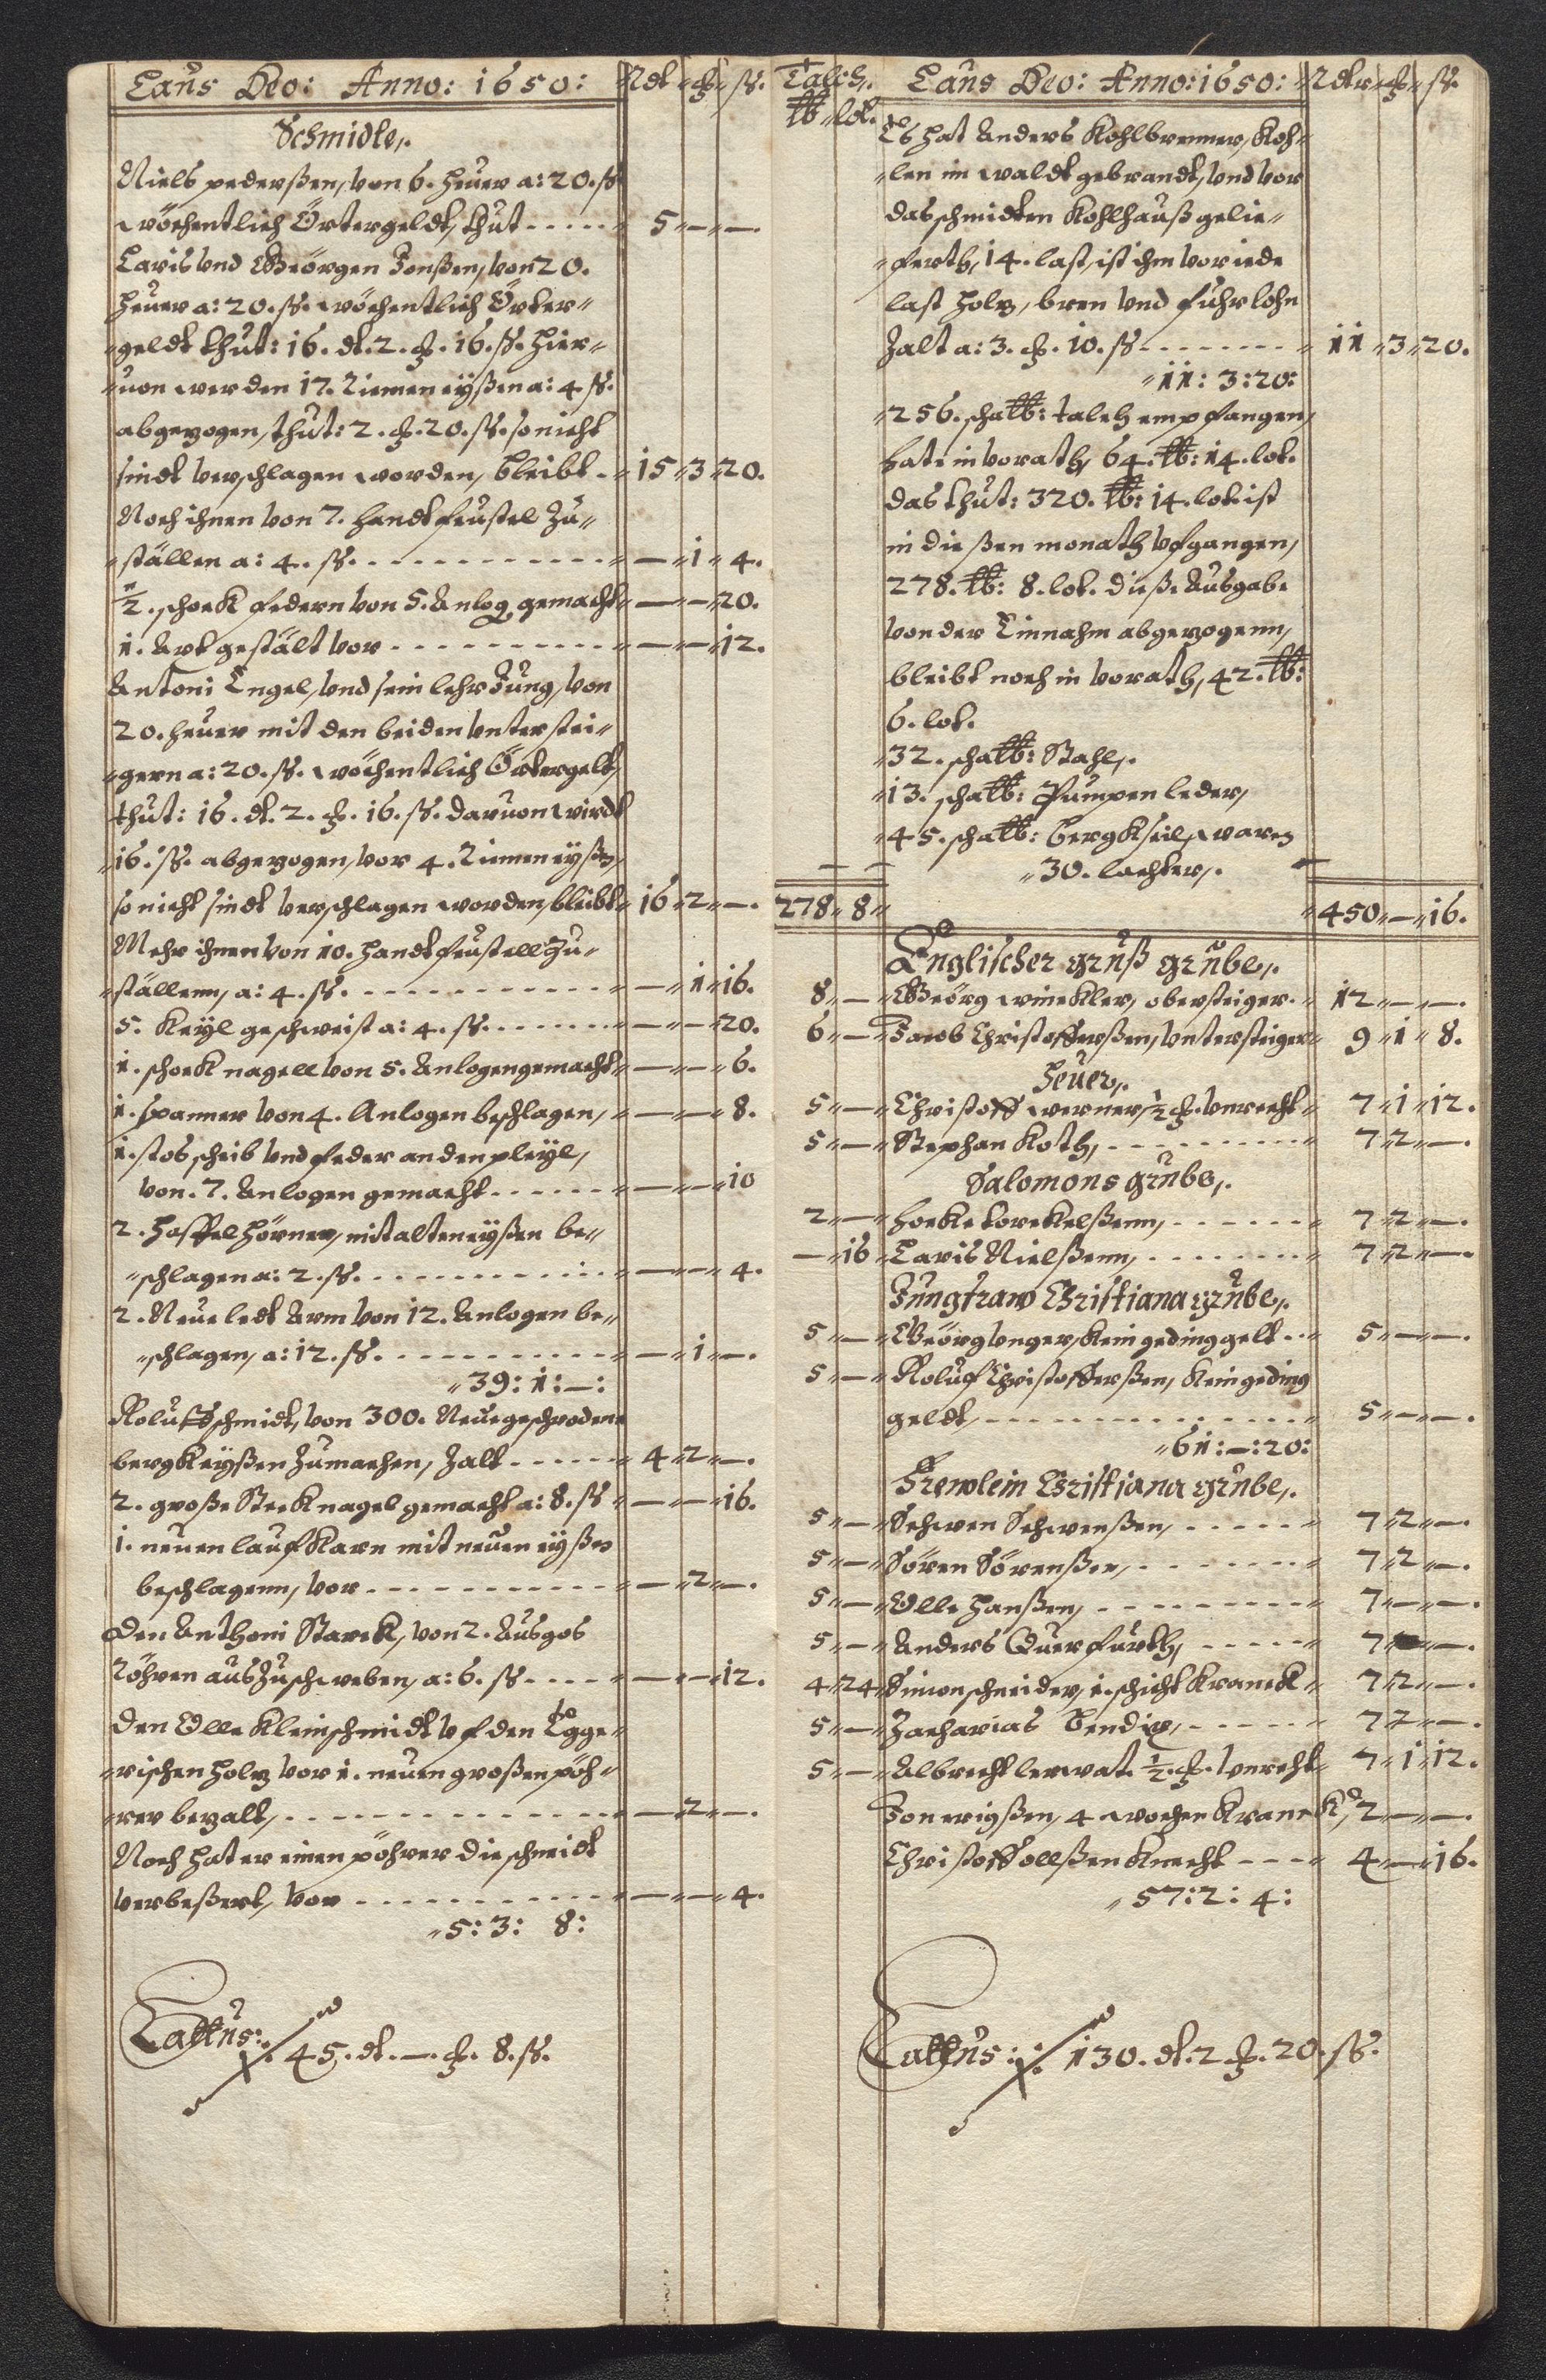 Laus Deo: Anno: 1650: Rdt ʒ ß.
Schmidte,.
Niels pederßen, von 6. heuer a: 20. ß
wöchentlich Örtergeldt, thut ----- 5 — —.
Laris vnd Geörgen Jonßen, von 20.
heuer a: 20. ß. wöchentlich Örter„
„geldt thut: 16. dt. 2. ʒ. 16. ß. hier„
„uon werden 17. Riemen eyßen a: 4 ß.
abgezogen, thut: 2. ʒ. 20. ß. so nicht
sindt verschlagen worden, bleibt - 15 3 20.
Noch ihnen von 7. handt feustel Zu„
„ställen a: 4. ß. ---------- — 1 4.
½. schock federn von 5. Anlog gemacht — — 20.
1. Axt gestält vor ---------- — — 12.
Antoni Engel, vnd sein lehr Jung, von
20. heuer mit den beiden vntersteei„
„gern a: 20. ß. wöchentlich Örtergelt,
thut: 16. dt. 2. ʒ. 16. ß. daruon wirdt
„16. ß. abgezogen, vor 4. Riemen eyßen,
so nicht sindt verschlagen worden, bleibt 16 2 —.
Mehr ihnen von 10. handt feustell Zu„
„ställenn, a: 4. ß. ---------- — 1 16.
5. Keyl geschweist a: 4. ß. ------- — — 20.
1. schock nagell von 5. Anlogen gemacht — — 6.
1. spanner von 4. Anlogen beschlagen, — — 8.
1. stos scheib vnd feder an den pleyl,
von. 7. Anlogen gemacht ------ — — 10
2. Haspel hörner, mit alten eyßen be„
„schlagen a: 2. ß. ----------- — — 4.
2. Neue ledt Arm von 12. Anlogen be„
„schlagen, a: 12. ß. ---------- — 1 —.
„39: 1: —:
Roluff schmidt, von 300. Neue geschrodene
bergk eyßen Zumachen, Zalt ----- 4 2 —.
2. große Steck nagel gemacht a: 8. ß — — 16.
1. neuen lauf Karn mit neuen eyßen
beschlagenn, vor ---------- — 2 —.
Den Anthoni Starck, von 2. Ausgos
Röhren aus Zuschweben, a: 6. ß ---- — — 12.
Den Olle Kleinschmidt vf den Egge„
„rischen holz vor 1. neuen großen pöh„
„rer bezalt, ------------- — 2 —.
Noch hat er einen pöhrer die schneidt
verbeßert, vor ---------- — — 4.
„5: 3: 8:
Lattus: 45. dt. —. ʒ. 8. ß.
Talch,. Laus Deo: Anno: 1650: Rdtr ʒ ß.
℔ lot.
Es hat Anders Kohlbrenner, Koh„
„len im waldt gebrandt, vnd vor
das schmidten Kohlhauß gelie„
„ferth, 14. last, ist ihm vor iede
last holz, bren vnd fuhrlohn
Zalt a: 3. ʒ. 10. ß -------- 11 3 20.
„11: 3: 20:
„256. scha℔: talch empfangen,
hat. in vorath, 64. ℔: 14. lot.
das thut: 320. ℔: 14. lot. ist
in dießen monath vfgangen,
278. ℔: 8. lot. dieße Ausgabe
von der Einnahm abgezogenn,
bleibt noch in vorath, 42. ℔:
6. lot.
„32. scha℔: Stahl,.
„13. scha℔: Pumpen leder,
„45. scha℔: bergkseil, waren
„30. lachter,.
278 8 450 — 16.
Englischer gruß grube,.
8 — Geörg winckler, obersteiger. 12 — —.
6 — Jacob Christofferßen, vntersteiger 9 1 8.
Heuer,.
5 — Christoff werner, ½ ʒ. vnrecht 7 1 12.
5 — Stephan Koth, ---------- 7 2 —.
Salomons grube,.
2 — hocke torckelßenn, ------ 7 2 —.
— 16 Laris Nielßenn, -------- 7 2 —.
Jungfraw Christiana grube,.
5 — Geörg vnger, Kein geding gelt -- 5 — —.
5 — Roluf Christofferßen, Kein geding
geldt, -------------- 5 — —.
„61: —: 20:
Frewlein Christiana grube,.
5 — Schwen Schwenßen, ----- 7 2 —.
5 — Sören Sörenßen, ------- 7 2 —.
5 — Olle Hanßen, --------- 7 — —.
5 — Anders Querfurth, ----- 7 —.
4 24 Simon schneider, 1. schicht Kranck 7 2 —.
5 — Zacharias Bendix, ----- 7 2 —.
5 — Albrecht lerwat. ½. ʒ. vnrecht 7 1 12.
Jon erigßen, 4 wochen Kranck, 2 — —.
Christoff ollßen Knecht ---- 4 — 16.
„57: 2: 4:
Lattus: 130. dt. 2 ʒ. 20. ß.